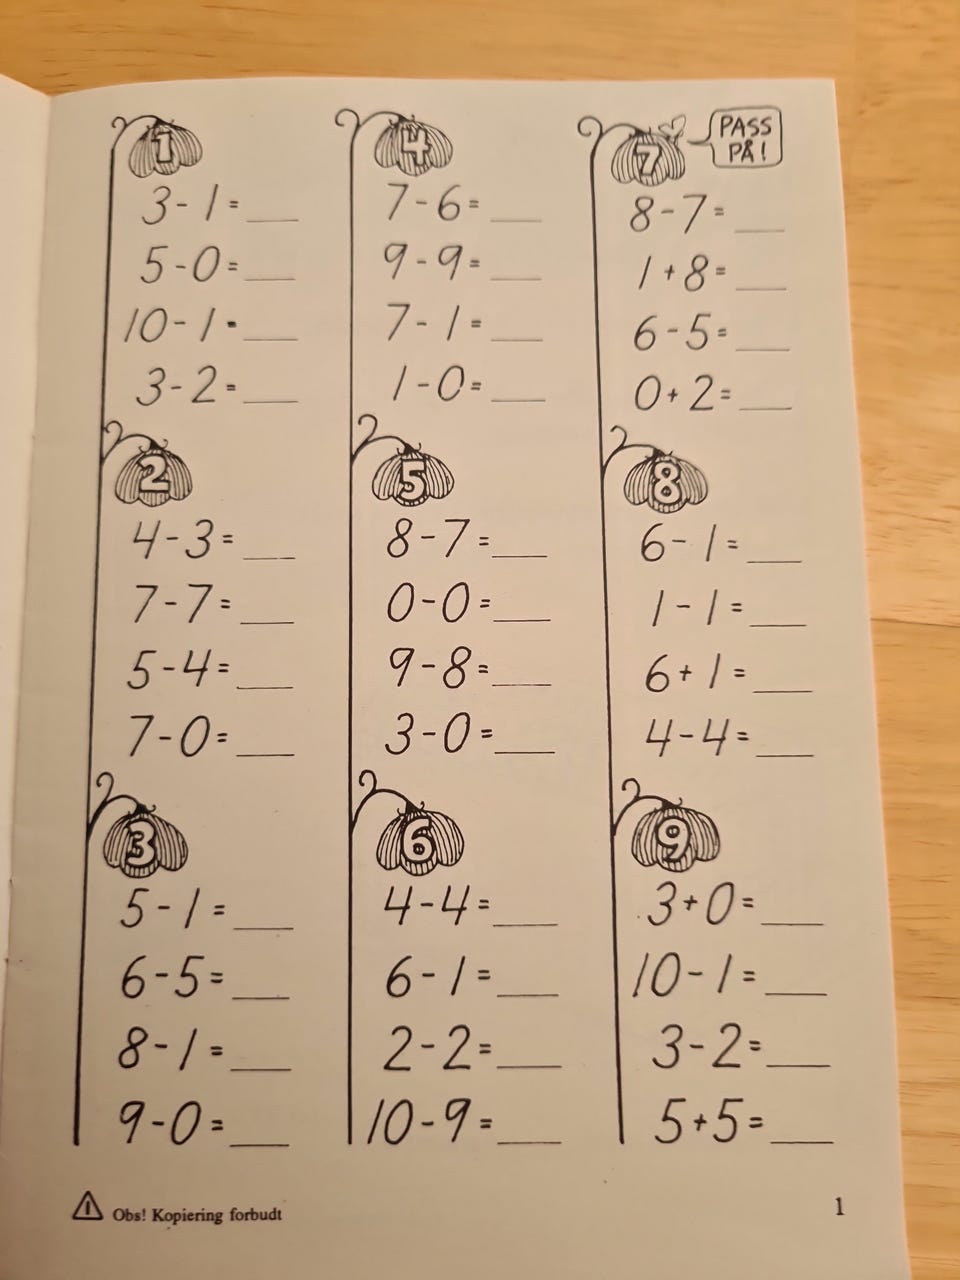 1
3 - 1 = ___
5 - 0 = ___
10 - 1 = ___
3 - 2 = ___
2
4 - 3 = ___
7 - 7 = ___
5 - 4 = ___
7 - 0 = ___
3
5 - 1 = ___
6 - 5 = ___
8 - 1 = ___
9 - 0 = ___
4
7 - 6 = ___
9 - 9 = ___
7 - 1 = ___
1 - 0 = ___
5
8 - 7 = ___
0 - 0 = ___
9 - 8 = ___
3 - 0 = ___
6
4 - 4 = ___
6 - 1 = ___
2 - 2 = ___
10 - 9 = ___
7
PASS
PÅ!
8 - 7 = ___
1 + 8 = ___
6 - 5 = ___
0 + 2 = ___
8
6 - 1 = ___
1 - 1 = ___
6 + 1 = ___
4 - 4 = ___
9
3 + 0 = ___
10 - 1 = ___
3 - 2 = ___
5 + 5 = ___
! Obs! Kopiering forbudt
1